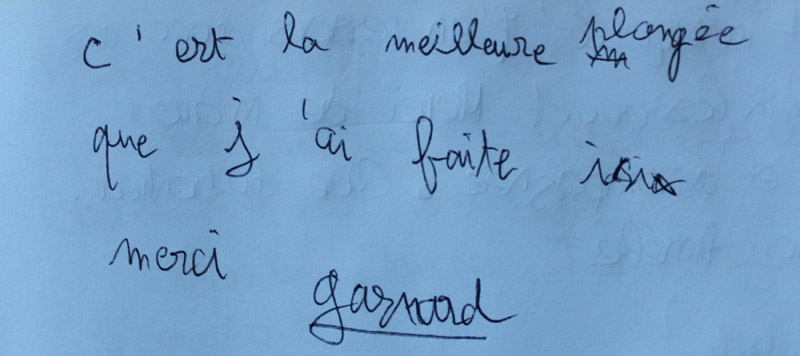 c'est la meilleure plongée
que j'ai faite ici
merci